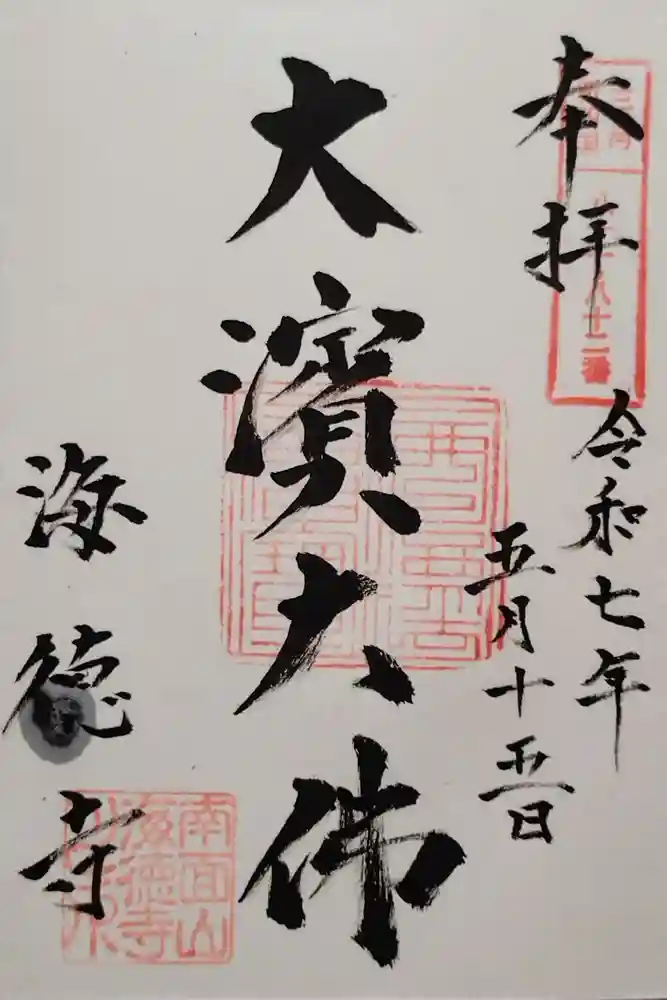 奉拝
八十二番
令和七年
五月十五日
大濱大佛
海徳寺
南面山
海徳寺